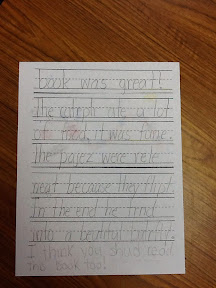 book was great!
The catrpilr ate a lot
of food. it was fune.
The pajez were rele
neat because they flipt.
In the end he trnd
into a beutiful
I think you shud read
this book too!